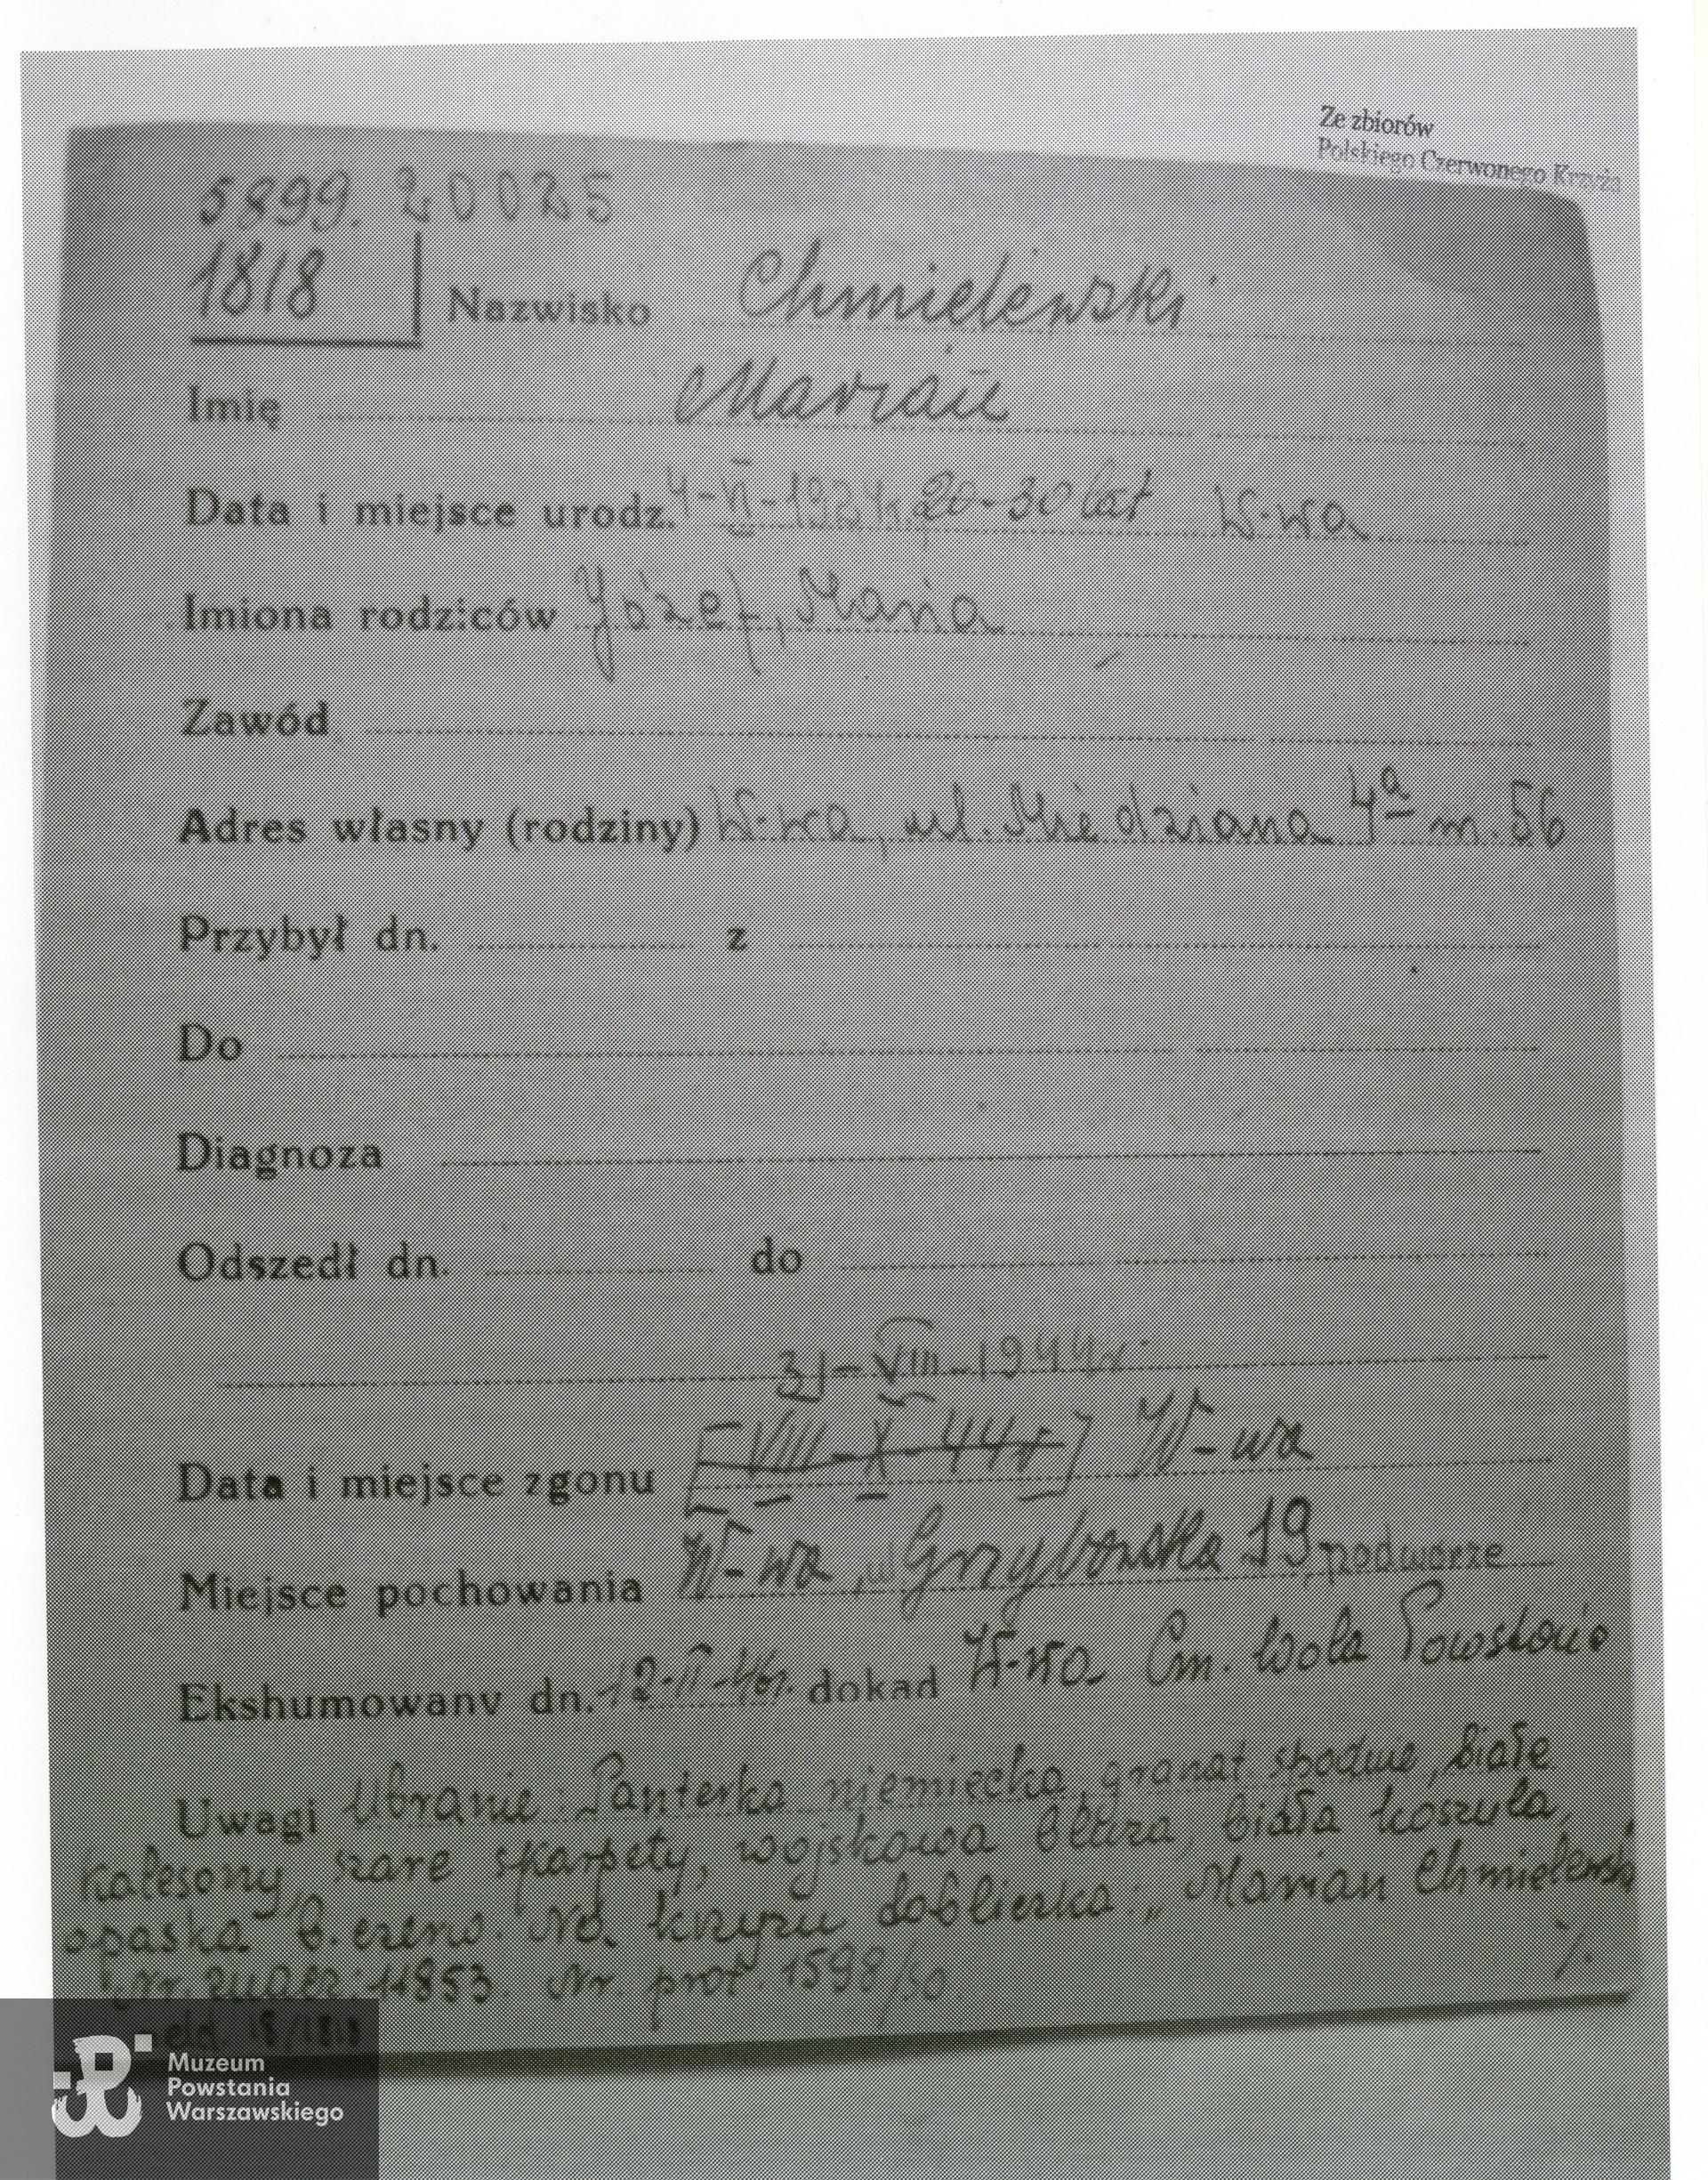 Ze zbiorów
Polskiego Czerwonego Krzyża
5899. 20025
1818
Nazwisko Chmielewski
Imię Marian
Data i miejsce urodz. 4-VI-192 r. 20-30 lat W-wa
Imiona rodziców Józef, Maria
Zawód
Adres własny (rodziny) W-wa, ul. Miedziana 4a m. 56
Przybył dn. z
Do
Diagnoza
Odszedł dn. do
31-VIII-1944r.
Data i miejsce zgonu [VIII-X-44r] W-wa
Miejsce pochowania W-wa, ul Grzybowska 19, podwórze
Ekshumowany dn. 12-II-46r. dokąd W-wa Cm. Wola Powstańc
Uwagi Ubranie: Panterka niemiecka, granat spodnie, białe
kalesony, szare skarpety, wojskowa bluza, biała koszula,
opaska b. czerw. Na krzyżu tabliczka: „Marian Chmielewski
Nr. 11853. Nr. prot. 1598/30
%.
18/1818
Muzeum
Powstania
Warszawskiego